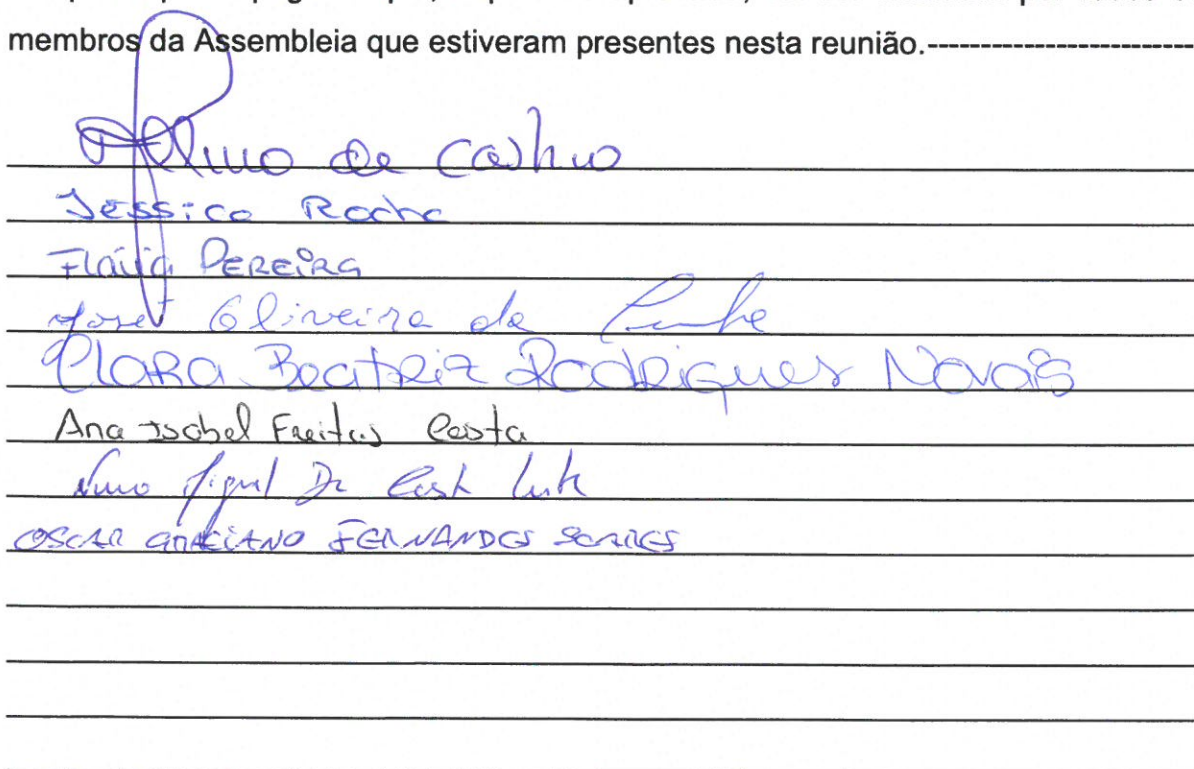 membros da Assembleia que estiveram presentes nesta reunião.-------------------------
de
Jessica Rocha
Flávia Pereira
José Oliveira da Cunha
Clara Beatriz Rodrigues Novais
Ana Isabel Freitas Costa
Nuno Miguel Da Costa
OSCAR GRACIANO FERNANDES SOARES